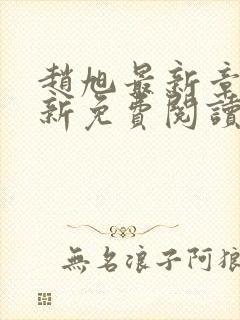 趙旭最新章
新免費閱讀
無名浪子阿狼